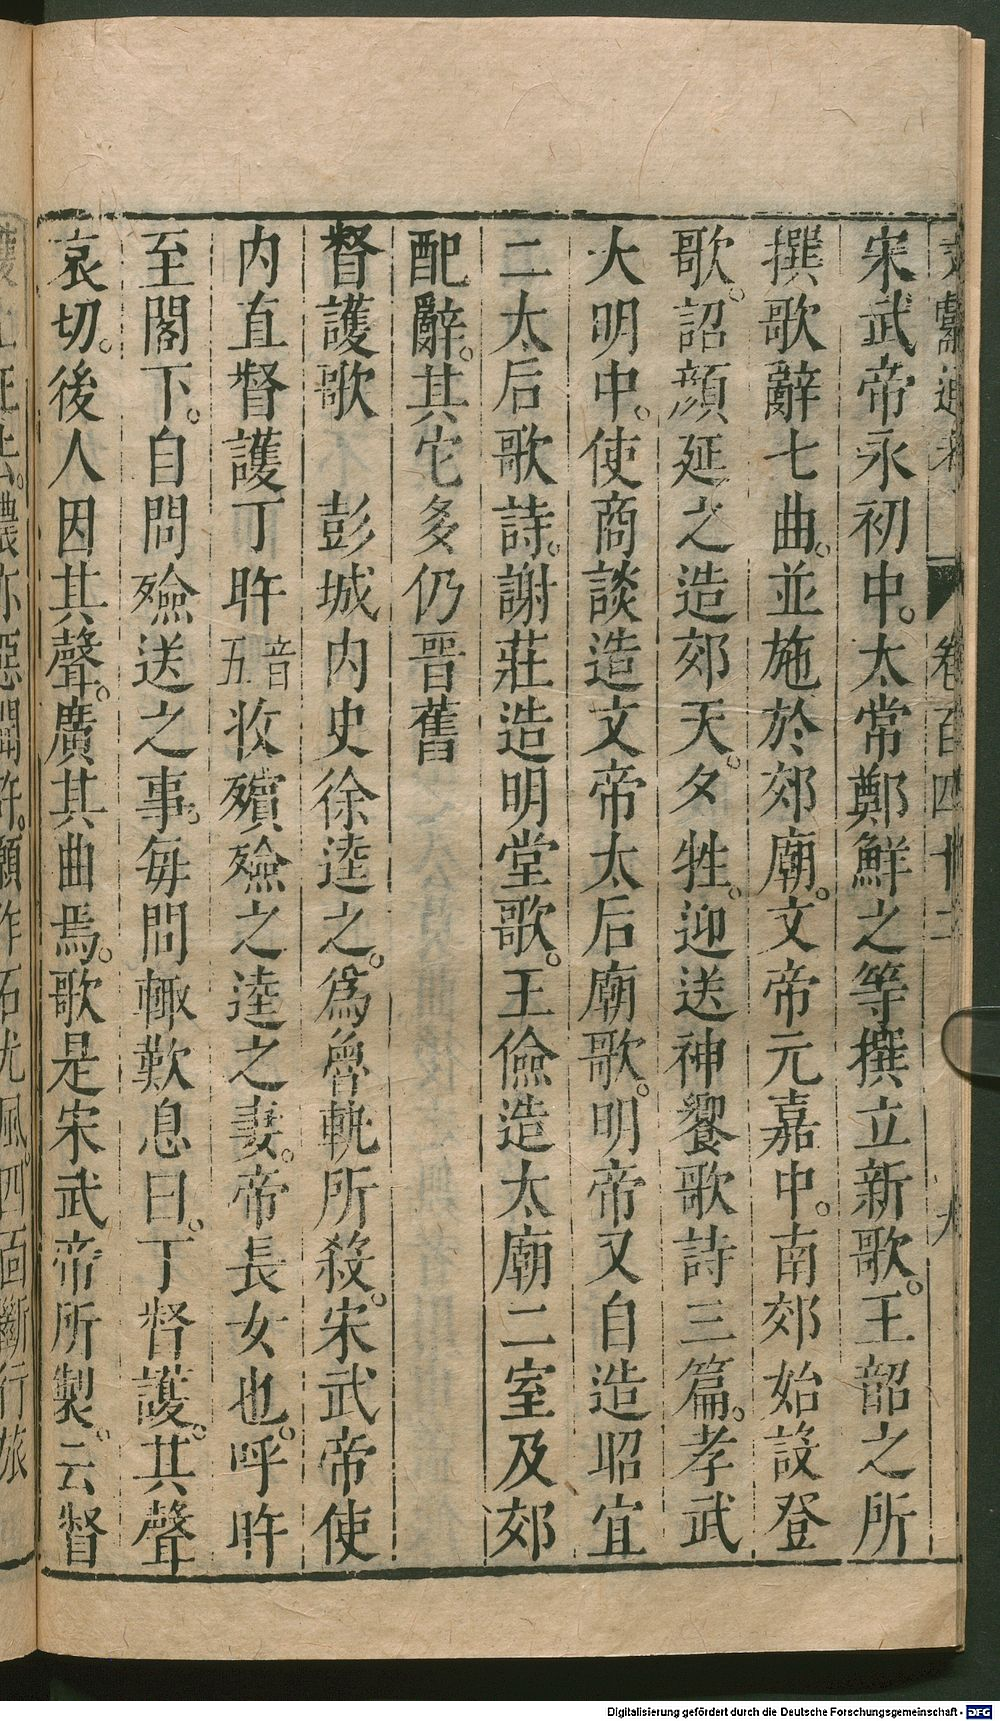 文獻通考 卷百四十二 九
宋武帝永初中。太常鄭鮮之等撰立新歌。王韶之所
撰歌辭七曲。並施於郊廟。文帝元嘉中。南郊始設登
歌。詔顔延之造郊天。夕牲。迎送神饗歌詩三篇。孝武
大明中。使商談造文帝太后廟歌。明帝又自造昭宣
二太后歌詩。謝莊造明堂歌。王儉造太廟二室及郊
配辭。其它多仍晉舊
督護歌 彭城内史徐逵之。爲魯軌所殺。宋武帝使
内直督護丁旿音五收殯殮之逵之妻。帝長女也。呼旿
至閣下。自問殮送之事。每問輒歎息曰。丁督護。其聲
哀切。後人因其聲。廣其曲焉。歌是宋武帝所製。云督
Digitalisierung gefördert durch die Deutsche Forschungsgemeinschaft - DFG